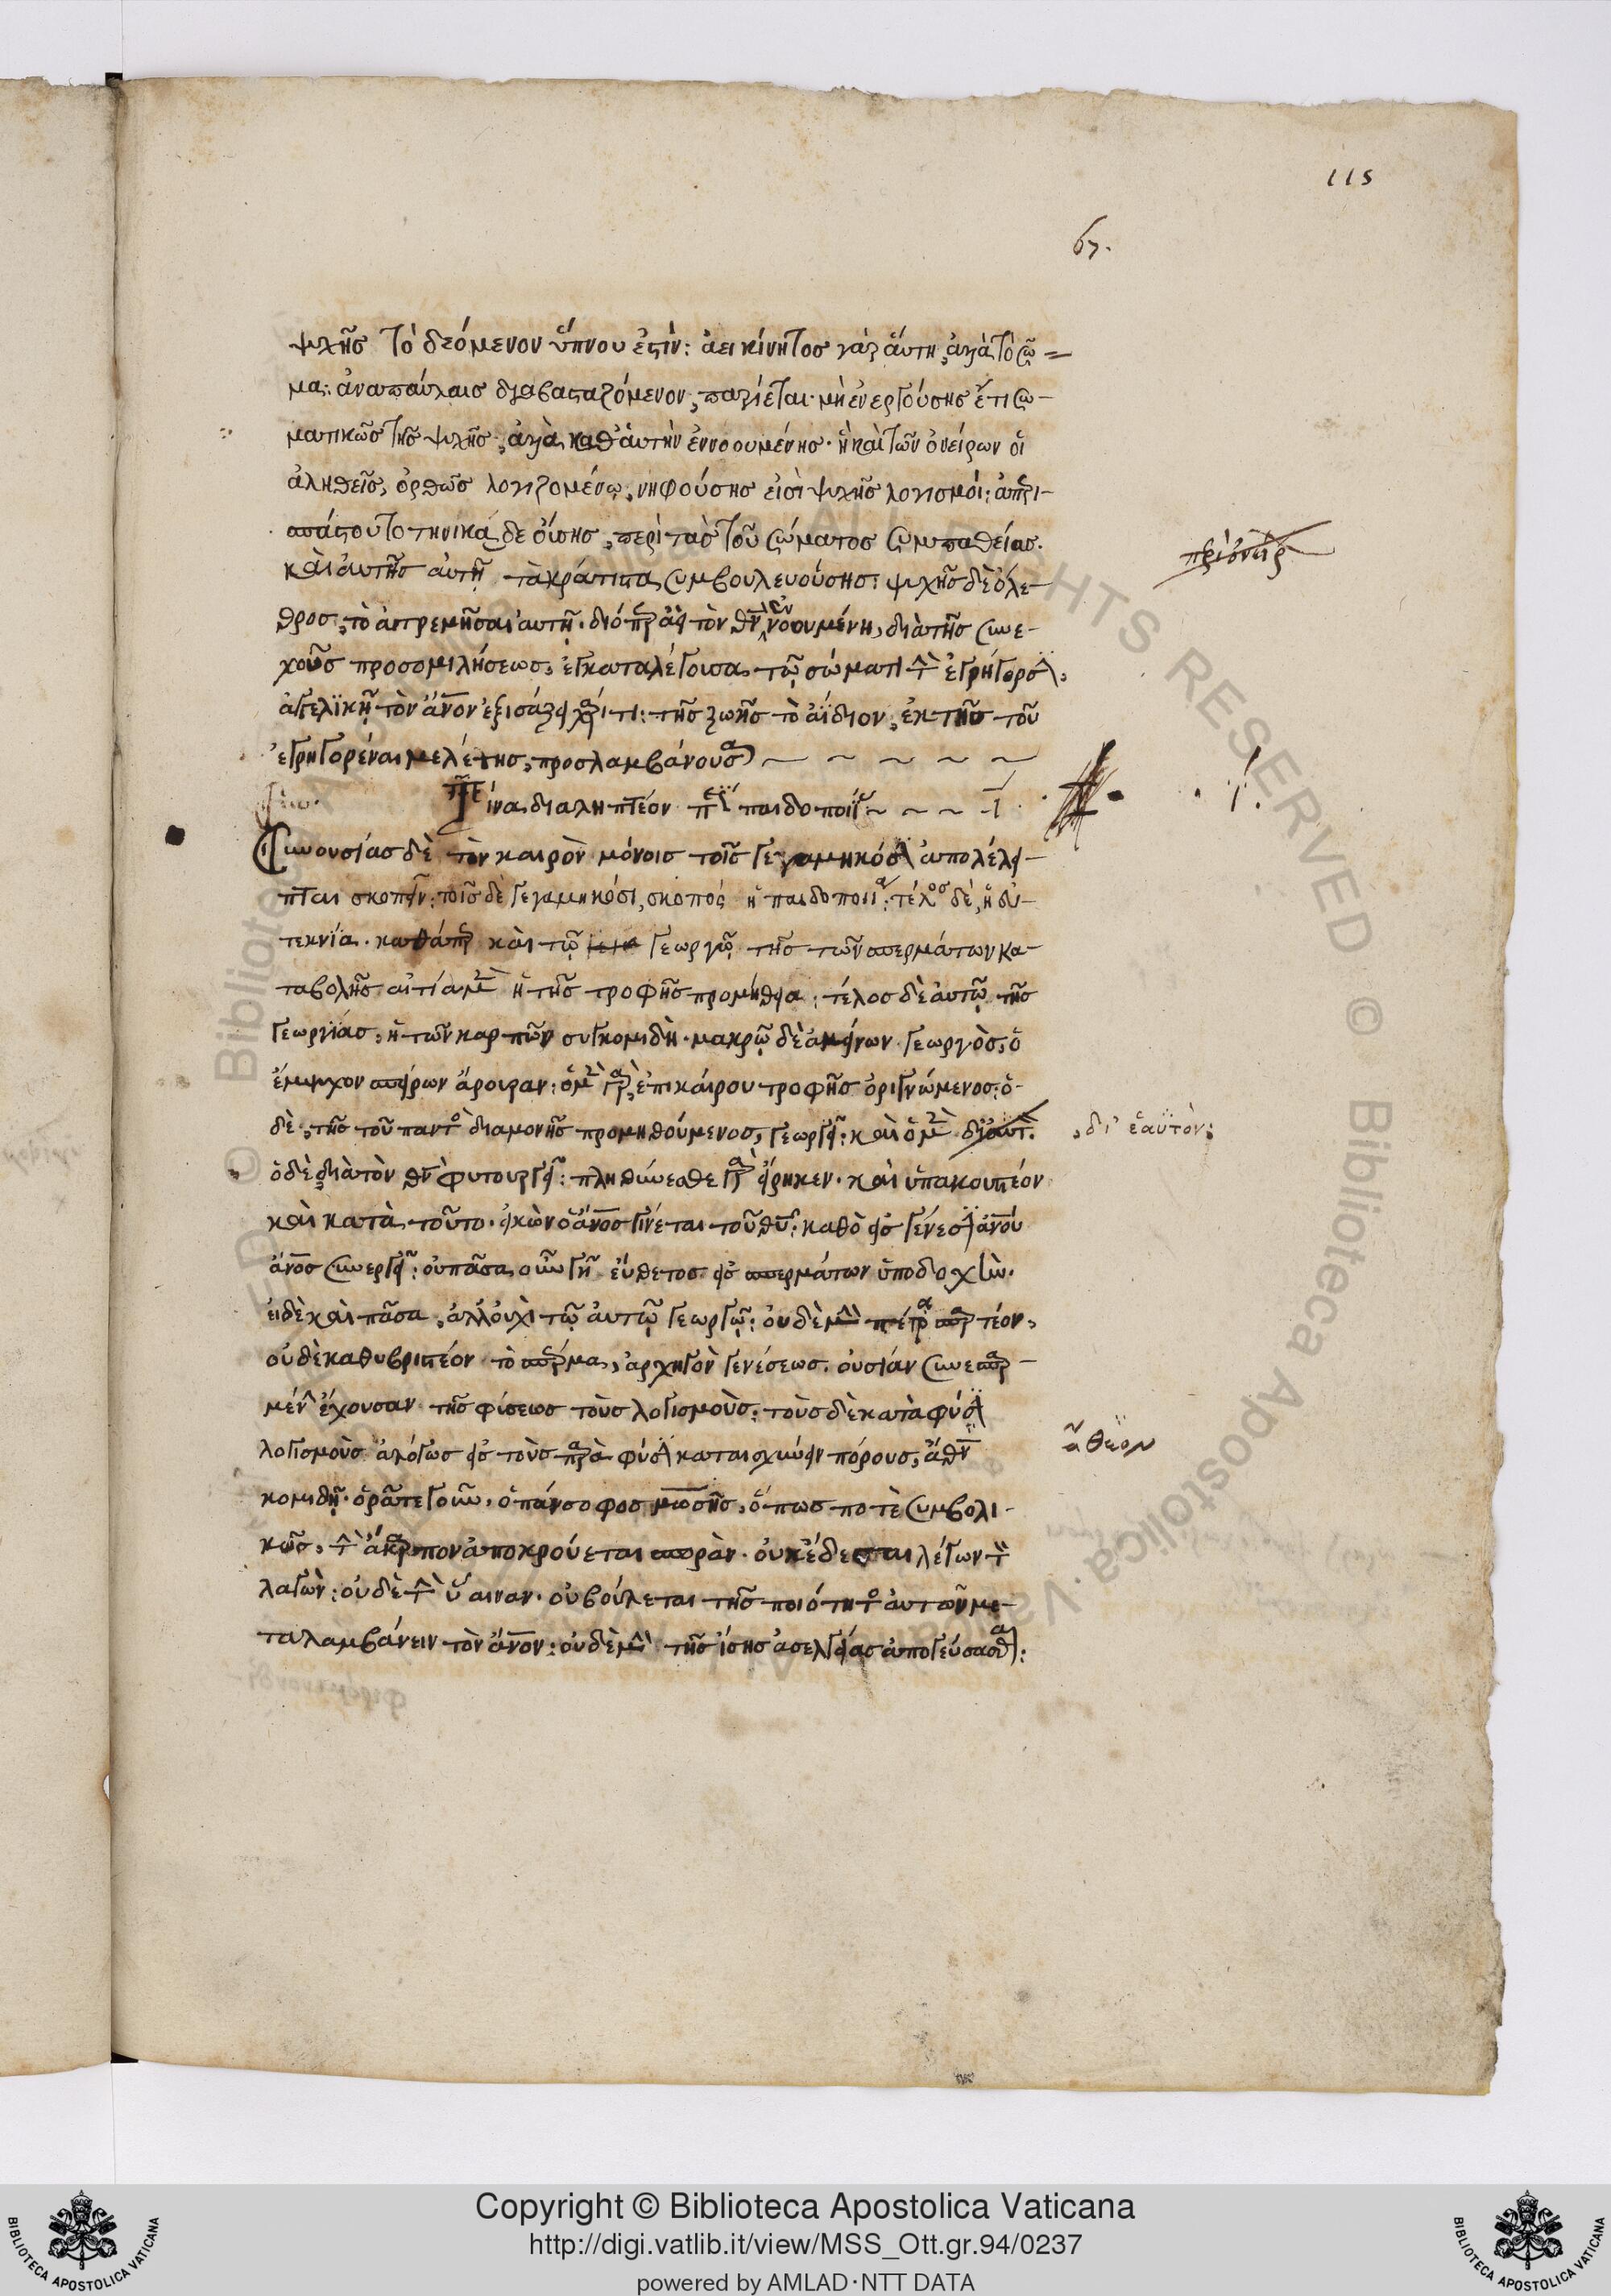 115
67.
ψυχῆς τὸ δεόμενον ὕπνου ἐστίν: ἀεικίνητος γὰρ ἅυτη, ἀλλὰ τὸ σῶ=
μα: ἀναπαύλαις διαβασταζόμενον, παρίεται· μὴ ἐνεργούσης ἔτι σω-
ματικῶς τῆς ψυχῆς, ἀλλὰ καθ' ἁυτὴν ἐννοουμένης· ἧ καὶ τῶν ὀνείρων οἱ
ἀληθεῖς, ὀρθῶς λογιζομένῳ, νηφούσης εἰσὶ ψυχῆς λογισμοί: ἀπερι-
σπάστου τοτηνικάδε οὔσης, περὶ τὰς τοῦ σώματος συμπαθείας.
καὶ ἀυτῆς ἀυτῇ τὰ κράτιστα συμβουλευούσης: ψυχῆς δὲ ὄλε-
θρος, τὸ ἀτρεμῆσαι ἀυτῇ· διόπερ ἀεὶ τὸν θν ἐννοουμένη, διὰ τῆς συνε-
χοῦς προσομιλήσεως, ἐγκαταλέγουσα τῷ σώματι τὴν ἐγρήγορσιν,
ἀγγελικῇ τὸν ἄνον ἐξισάζει χάριτι: τῆς ζωῆς τὸ ἀΐδιον, ἐκ τῆς τοῦ
ἐγρηγορέναι μελέτης, προσλαμβάνουσα
Τίνα διαληπτέον περὶ παιδοποιΐας ι
Συνουσίας δὲ τὸν καιρὸν μόνοις τοῖς γεγαμηκόσιν ἀπολέλει-
πται σκοπεῖν: τοῖς δὲ γεγαμηκόσι, σκοπὸς ἡ παιδοποιία: τέλος δὲ, ἡ ἐυ-
τεκνία· καθάπερ καὶ τῷ γεωργῷ τῆς τῶν σπερμάτων κα-
ταβολῆς αἰτία μὲν ἡ τῆς τροφῆς προμήθεια: τέλος δὲ ἀυτῷ τῆς
γεωργίας, ἡ τῶν καρπῶν συγκομιδὴ· μακρῷ δὲ ἀμείνων γεωργὸς, ὁ
ἔμψυχον σπείρων ἄρουραν: ὁ μὲν γὰρ, ἐπικαίρου τροφῆς ὀριγνώμενος: ὁ-
δὲ, τῆς τοῦ παντὸς διαμονῆς προμηθούμενος, γεωργεῖ: καὶ ὁ μὲν δι' ἑαυτὸν:
, δι' ἑαυτὸν:
ὁ δὲ, διὰ τὸν θν φυτουργεῖ: πληθύνεσθε γὰρ εἴρηκεν· καὶ ὑπακουστέον
καὶ κατὰ τοῦτο· εἰκὼν ὁ ἄνος γίνεται τοῦ θυ: καθὸ εἰς γένεσιν ἀνου
ἄνος συνεργεῖ: οὐ πᾶσα οὖν γῆ εὔθετος εἰς σπερμάτων ὑποδοχὴν·
εἰ δὲ καὶ πᾶσα, ἀλλ' οὐχὶ τῷ ἀυτῷ γεωργῷ: οὐδὲ μὴν πέτρα σπαρτέον,
οὐδὲ καθυβριστέον τὸ σπέρμα, ἀρχηγὸν γενέσεως, οὐσίαν συνεσπαρ-
μένην ἔχουσαν τῆς φύσεως τοὺς λογισμοὺς: τοὺς δὲ κατὰ φύσιν
λογισμοὺς ἀλόγως εἰς τοὺς παρὰ φύσιν καταισχύνειν πόρους, ἄθεον
ἄθεον
κομιδῇ· ὁρᾶτε γοῦν, ὁ πάνσοφος μωσῆς, ὅπως ποτὲ συμβολι-
κῶς, τὴν ἄκαρπον ἀποκρούεται σπορὰν· οὐκ ἔδεσται λέγων τὸν
λαγὼν: οὐδὲ τὴν ὕαιναν· οὐ βούλεται τῆς ποιότητος ἀυτῶν με-
ταλαμβάνειν τὸν ἄνον: οὐδὲ μὴν τῆς ἴσης ἀσελγείας ἀπογεύσασθαι:
Copyright © Biblioteca Apostolica Vaticana
http://digi.vatlib.it/view/MSS_Ott.gr.94/0237
powered by AMLAD·NTT DATA
BIBLIOTECA APOSTOLICA VATICANA
BIBLIOTECA APOSTOLICA VATICANA